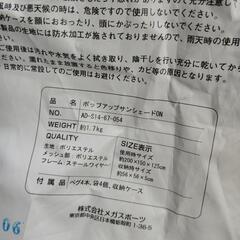 及び悪天候の時は、危険ですので使用しないでください。
ケースを顔にかぶらないでください。
製品の生地には防水加工が施しておりません。雨天時の使用
でください。
使用後は汚れや水気をよく拭き取り、陰干しを行って充分に乾かして
さい。そのまま放置されますと、カビ等の原因となります。
品名 ポップアップサンシェードDN
NO. AD-S14-67-054
WEIGHT 約1.7kg
QUALITY
生地：ポリエステル
メッシュ部：ポリエステル
フレーム：スチールワイヤー
SIZE表示
使用時サイズ
約200×150×125cm
収納時サイズ
約56×56×5cm
付属品 ペグ4本、袋4個、収納ケース
株式会社メガスポーツ
東京都中央区日本橋蛎殻町1-36-5
06